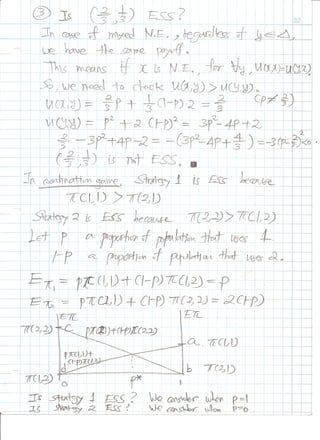 ③ Is (2/3, 1/3) ESS?
In case of mixed N.E., regardless of y∈Δ,
we have the same payoff.
This means if x is N.E., for ∀y, u(x,x)=u(y,x).
So, we need to check u(x,y) > u(y,y).
u(x,y) = 2/3 p + 1/3 (1-p) 2 = 2/3 (p≠2/3)
u(y,y) = p² + 2 (1-p)² = 3p² - 4p + 2
2/3 - 3p² + 4p - 2 = -(3p² - 4p + 4/3) = -3(p-2/3)² < 0.
(2/3, 1/3) is not ESS. ■
In coordination game, Strategy 1 is ESS because
π(1,1) > π(2,1)
Strategy 2 is ESS because π(2,2) > π(1,2)
Let p a proportion of population that uses 1
1-p a proportion of population that uses 2.
Eπ₁ = pπ(1,1) + (1-p)π(1,2) = p
Eπ₂ = pπ(2,1) + (1-p)π(2,2) = 2(1-p)
Eπ Eπ
π(2,2) c pπ(2,1)+(1-p)π(2,2)
a π(1,1)
pπ(1,1)+
(1-p)π(1,2)
π(1,2) d b π(2,1)
0 p* 1
Is strategy 1 ESS? We consider when p=1
Is strategy 2 ESS? We consider when p=0